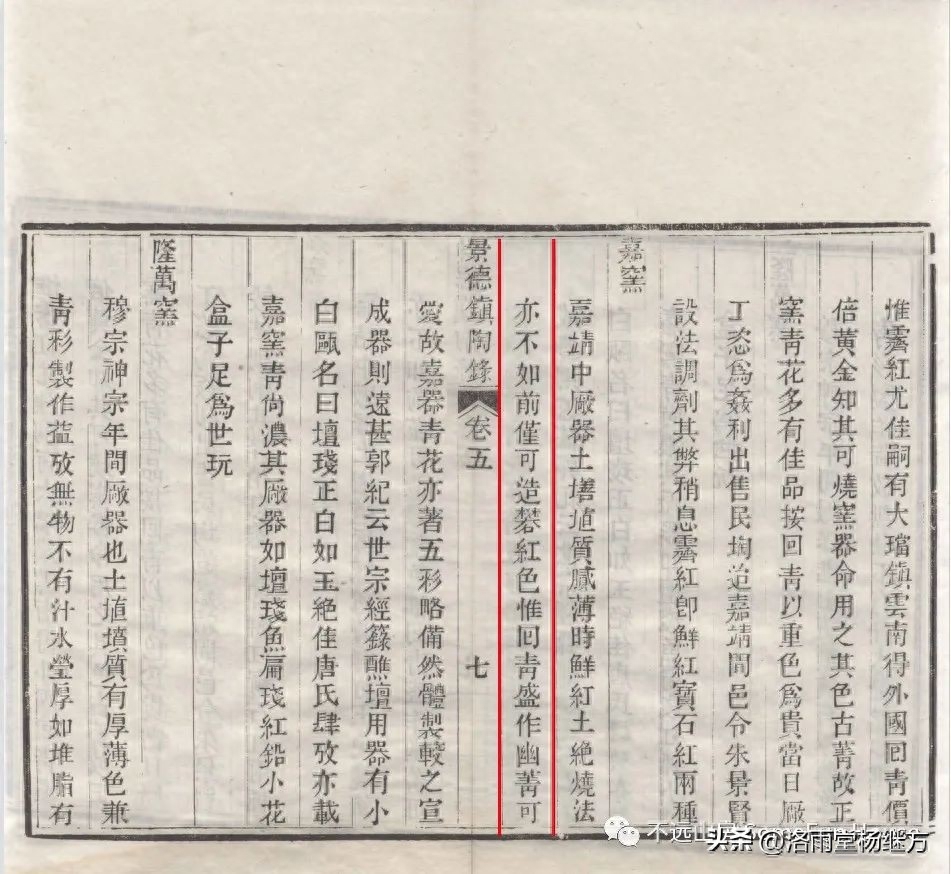 惟霽紅尤佳嗣有大璫鎮雲南得外國囘青價
倍黃金知其可燒窯器命用之其色古菁故正
窯青花多有佳品按回青以重色爲貴當日厰
丁恣爲姦利出售民陶迨嘉靖間邑令朱景賢
設法調劑其弊稍息霽紅卽鮮紅寶石紅兩種
嘉窯
嘉靖中厰器土墡埴質膩薄時鮮紅土絕燒法
亦不如前僅可造礬紅色惟囘青盛作幽菁可
景德鎮陶錄 卷五 七
愛故嘉器青花亦著五彩略備然體製較之宣
成器則遠甚郭紀云世宗經籙醮壇用器有小
白甌名曰壇琖正白如玉絕佳唐氏肆攷亦載
嘉窯青尚濃其厰器如壇琖魚扁琖紅鉛小花
盒子足爲世玩
隆萬窯
穆宗神宗年間厰器也土埴墳質有厚薄色兼
青彩製作葢攷無物不有汁水瑩厚如堆脂有
不远山房
头条 @洛雨堂杨继方